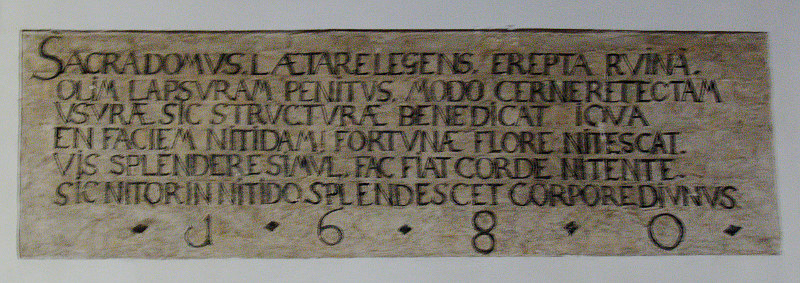 SACRA DOMVS. LÆTARE LEGENS. EREPTA RVINÂ.
OLIM LAPSVRAM PENITVS. MODO CERNE RETECTAM
VSVRÆ SIC STRVCTVRÆ BENEDICAT
EN FACIEM NITIDAM! FORTVNÆ FLORE NITESCAT.
VIS SPLENDERE SIMVL, FAC FIAT CORDE NITENTE.
SIC NITOR IN NITIDO SPLENDESCET CORPORE
1680